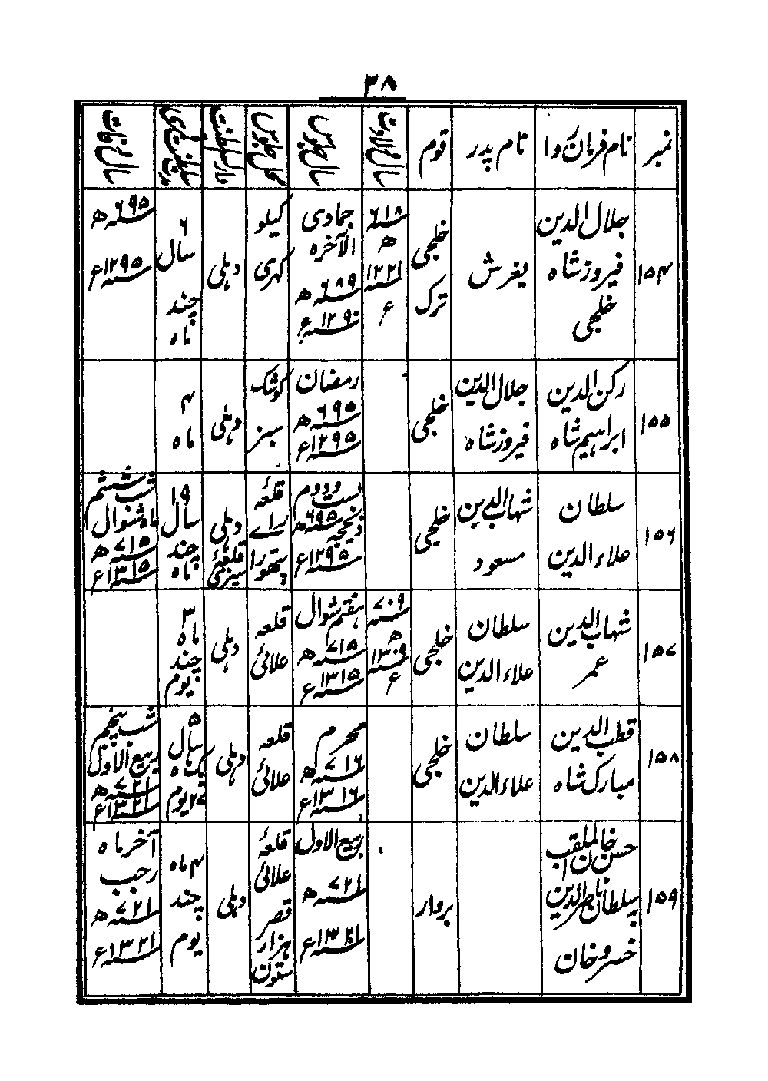 ۳۸
نمبر | نام فرمان روا | نام پدر | قوم | سال ولادت | سال جلوس | محل جلوس | دار السلطنت | سال وفات
۱۵۴ | جلال الدین فیروز شاہ خلجی | یغرش | خلجی ترک | ۶۱۸ ھ ۱۲۲۱ ء | جمادی الآخرہ سنہ ۶۸۹ ھ سنہ ۱۲۹۰ ء | کیلو کہری | دہلی | ۶ سال چند ماہ | سنہ ۶۹۵ ھ سنہ ۱۲۹۵ ء
۱۵۵ | رکن الدین ابراہیم شاہ | جلال الدین فیروز شاہ | خلجی | رمضان سنہ ۶۹۵ ھ سنہ ۱۲۹۵ ء | کوشک سبز | دہلی | ۴ ماہ
۱۵۶ | سلطان علاء الدین | شہاب الدین مسعود | خلجی | بست و دوم ذیحجہ سنہ ۶۹۵ ھ سنہ ۱۲۹۵ ء | قلعہ رائے پتھورا | دہلی قلعہ سیری | ۱۹ سال چند ماہ | شب ششم ماہ شوال سنہ ۷۱۵ ھ سنہ ۱۳۱۵ ء
۱۵۷ | شہاب الدین عمر | سلطان علاء الدین | خلجی | سنہ ۷۰۹ ھ سنہ ۱۳۰۹ ء | ہفتم شوال سنہ ۷۱۵ ھ سنہ ۱۳۱۵ ء | قلعہ علائی | دہلی | ۳ ماہ چند یوم
۱۵۸ | قطب الدین مبارک شاہ | سلطان علاء الدین | خلجی | محرم سنہ ۷۱۶ ھ سنہ ۱۳۱۶ ء | قلعہ علائی | دہلی | ۵ سال یوم | شب پنجم ربیع الاول سنہ ۷۲۱ ھ سنہ ۱۳۲۱ ء
۱۵۹ | حسن خان الملقب بسلطان ناصر الدین خسرو خان | بروار | ربیع الاول سنہ ۷۲۱ ھ سنہ ۱۳۲۱ ء | قلعہ علائی قصر ہزار ستون | دہلی | ۴ ماہ چند یوم | آخر ماہ رجب سنہ ۷۲۱ ھ سنہ ۱۳۲۱ ء